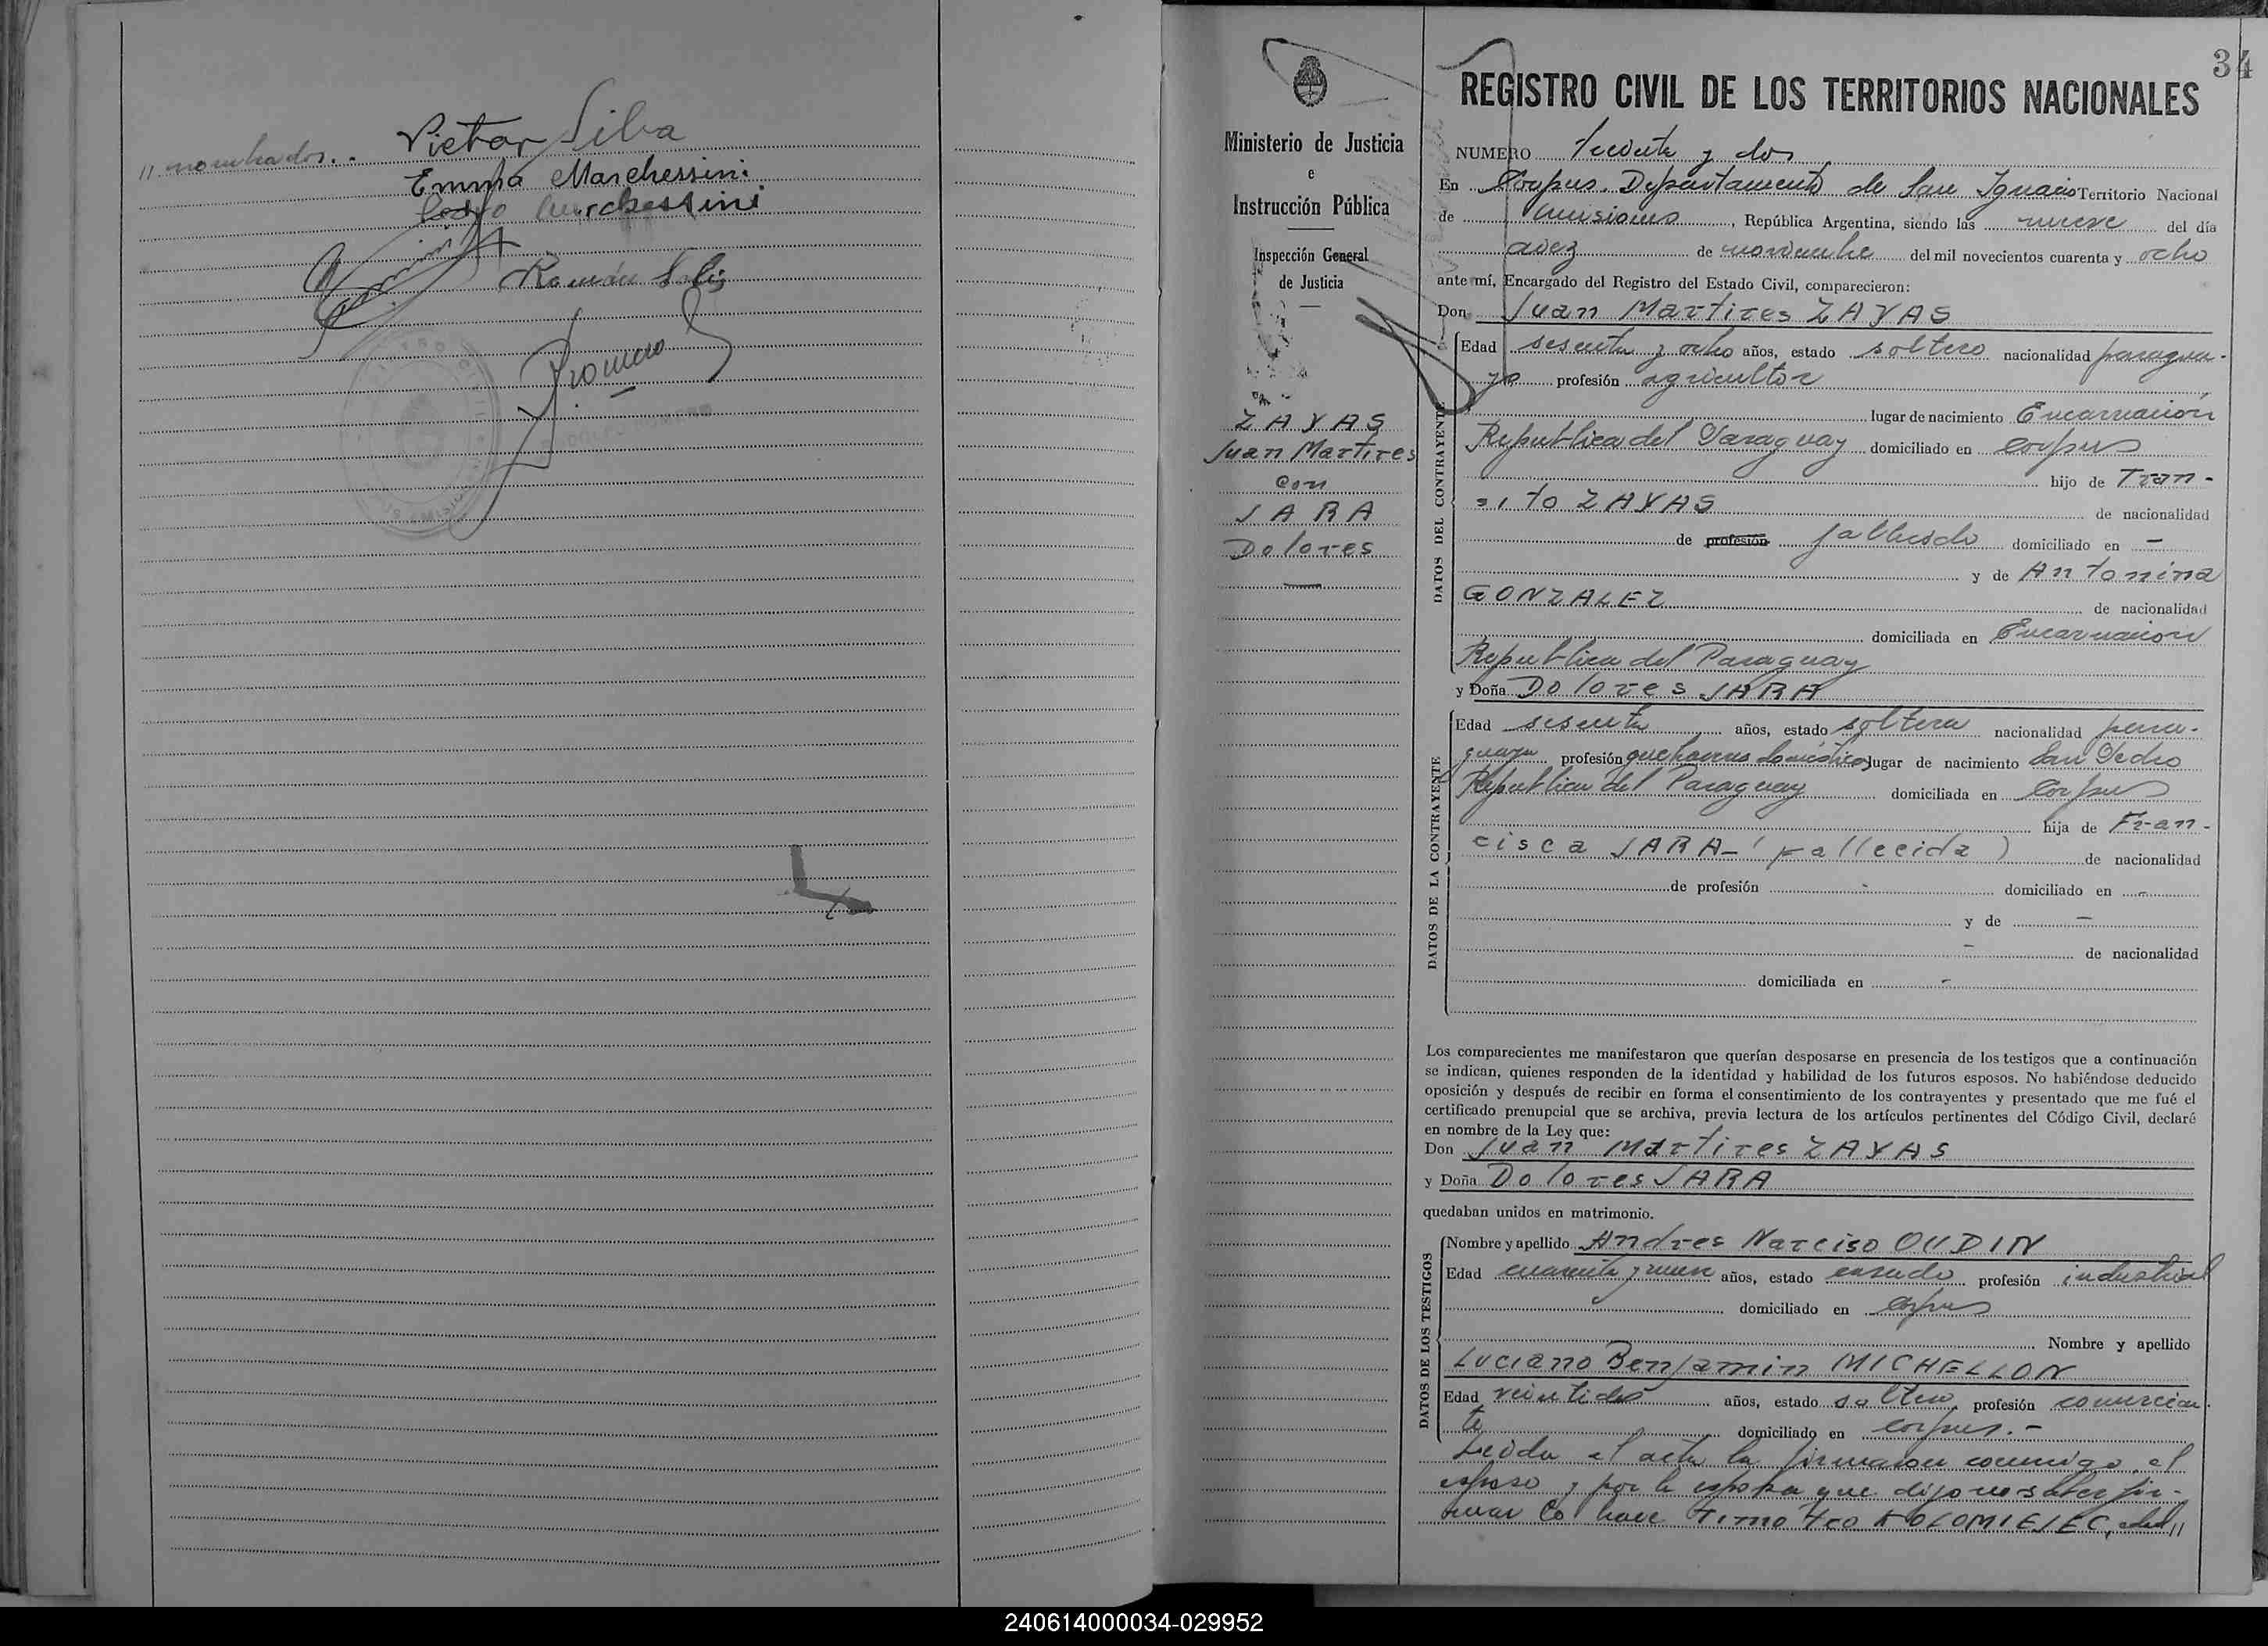 // nombrados..
Victor Silva
Emma Marchessini
Pedro Marchessini
Román Solis
Romero
34
Ministerio de Justicia
e
Instrucción Pública
Inspección General
de Justicia
ZAYAS
Juan Martires
con
JARA
Dolores
REGISTRO CIVIL DE LOS TERRITORIOS NACIONALES
NUMERO Treinta y dos
En Corpus Departamento de San Ignacio Territorio Nacional
de Misiones, República Argentina, siendo las nueve del día
diez de noviembre del mil novecientos cuarenta y ocho
ante mí, Encargado del Registro del Estado Civil, comparecieron:
Don Juan Martires ZAYAS
DATOS DEL CONTRAYENTE
Edad sesenta y ocho años, estado soltero nacionalidad paragua-
yo profesión agricultor
lugar de nacimiento Encarnación
Republica del Paraguay domiciliado en Corpus
hijo de Tran-
sito ZAYAS de nacionalidad
de profesión fallecido domiciliado en -
y de Antonina
GONZALEZ de nacionalidad
domiciliada en Encarnacion
Republica del Paraguay
y Doña Dolores JARA
DATOS DE LA CONTRAYENTE
Edad sesenta años, estado soltera nacionalidad para-
guaya profesión quehaceres domésticos lugar de nacimiento San Pedro
Republica del Paraguay domiciliada en Corpus
hija de Fran-
cisca JARA-(fallecida) de nacionalidad
de profesión - domiciliado en -
y de -
- de nacionalidad
domiciliada en -
Los comparecientes me manifestaron que querían desposarse en presencia de los testigos que a continuación
se indican, quienes responden de la identidad y habilidad de los futuros esposos. No habiéndose deducido
oposición y después de recibir en forma el consentimiento de los contrayentes y presentado que me fué el
certificado prenupcial que se archiva, previa lectura de los artículos pertinentes del Código Civil, declaré
en nombre de la Ley que:
Don Juan Martires ZAYAS
y Doña Dolores JARA
quedaban unidos en matrimonio.
DATOS DE LOS TESTIGOS
Nombre y apellido Andres Narciso OUDIN
Edad cuarenta y nueve años, estado casado profesión industrial
domiciliado en Corpus
Nombre y apellido
Luciano Benjamin MICHELLON
Edad veintidos años, estado soltero profesión comercian-
te domiciliado en Corpus.-
Leida el acta la firmaron conmigo, el
esposo y por la esposa que dijo no saber fir-
mar lo hace Timoteo KOLOMIEJEC, del //
240614000034-029952